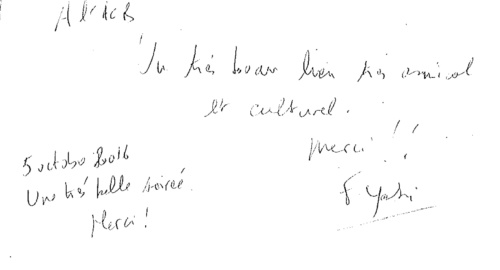 A l'ACB
Un très beau lien très amical
et culturel.
Merci !!
5 octobre 2016
Une très belle soirée.
Merci !